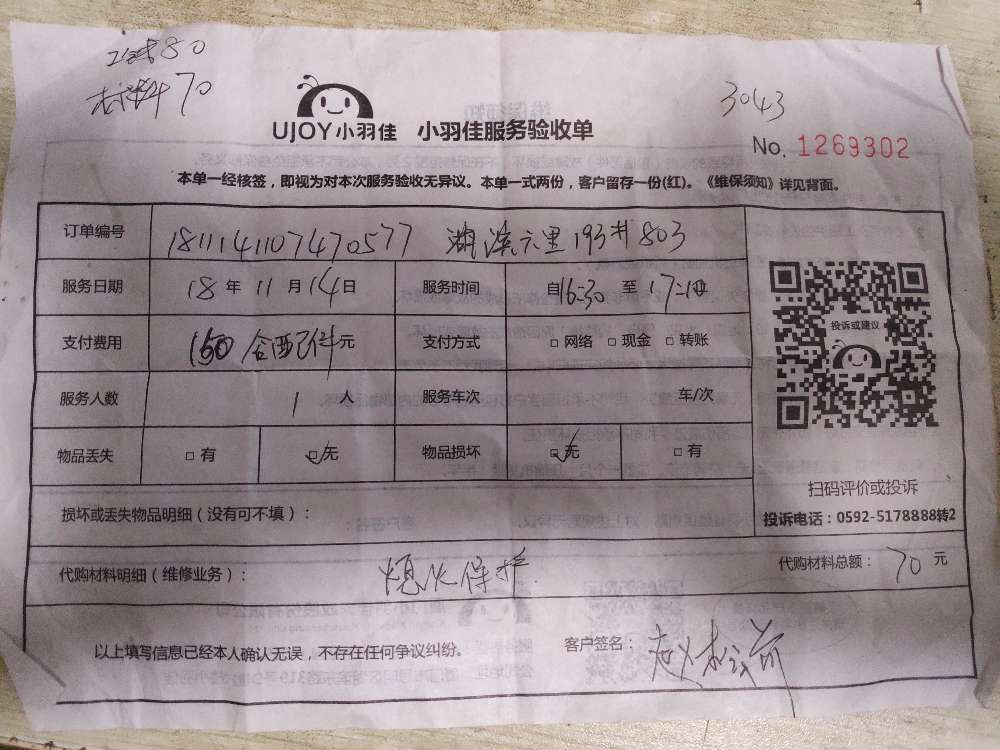 工钱80
材料70
3043
UJOY小羽佳 小羽佳服务验收单
No. 1269302
本单一经核签，即视为对本次服务验收无异议。本单一式两份，客户留存一份(红)。《维保须知》详见背面。
订单编号 1811141107470577 湖滨六里193#803
服务日期 18年11月14日 服务时间 自16:30 至17:10
支付费用 150含配件元 支付方式 □ 网络 □ 现金 □ 转账
服务人数 1 人 服务车次 车/次
物品丢失 □ 有 □ 无 物品损坏 □ 无 □ 有
投诉或建议
扫码评价或投诉
投诉电话：0592-5178888转2
损坏或丢失物品明细（没有可不填）：
代购材料明细（维修业务）： 熄火保护 代购材料总额： 70 元
以上填写信息已经本人确认无误，不存在任何争议纠纷。 客户签名：